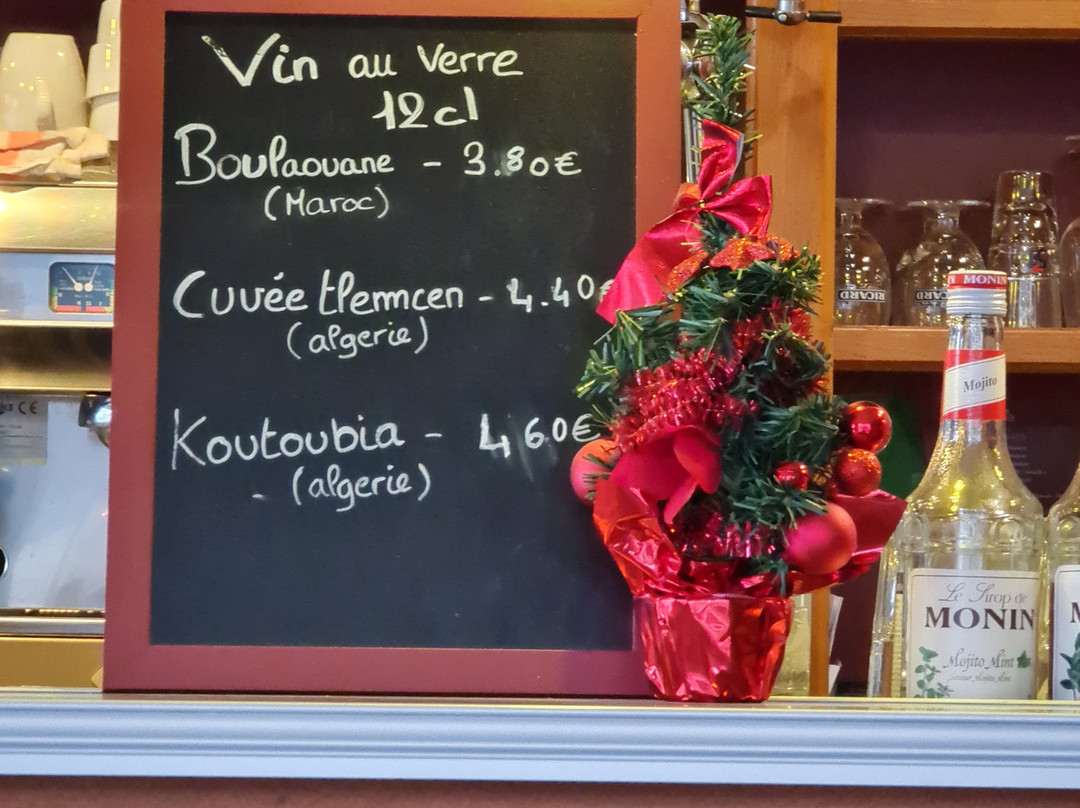 Vin au Verre
12cl
Boulaouane - 3.80€
(Maroc)
Cuvée tlemcen - 4.40€
(algerie)
Koutoubia - 4 60€
- (algerie)
RICARD
RICARD
MONIN
Mojito
Le Sirop de
MONIN
Mojito Mint
M
CE